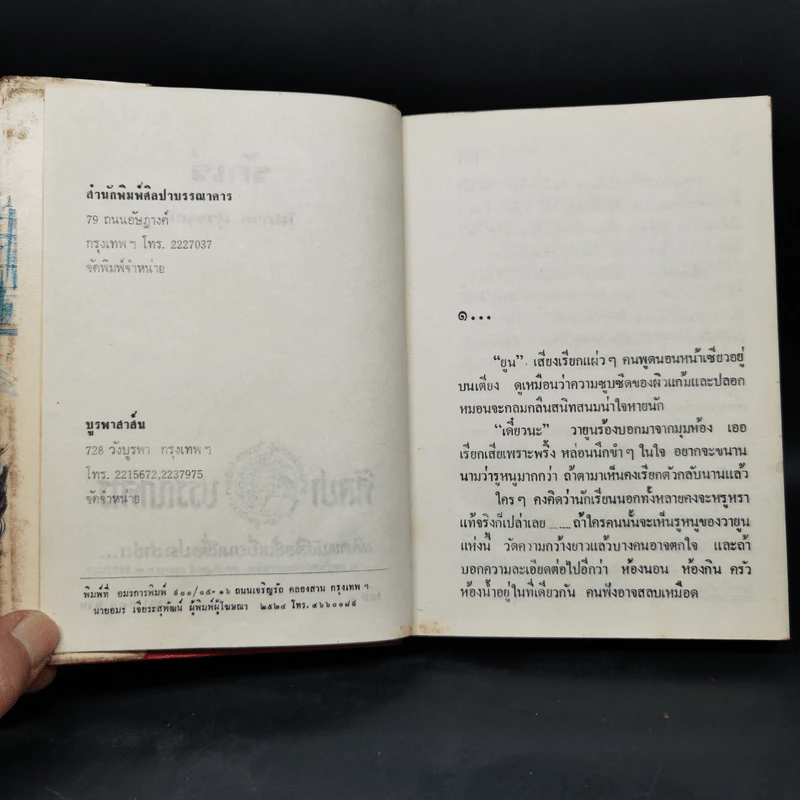 สำนักพิมพ์ศิลปาบรรณาคาร
79 ถนนอัษฎางค์
กรุงเทพฯ โทร. 2227037
จัดพิมพ์จำหน่าย
บูรพาสาส์น
728 วังบูรพา กรุงเทพฯ
โทร. 2215672,2237975
จัดจำหน่าย
พิมพ์ที่ อมรการพิมพ์ ๙๐๐/๑๕-๑๖ ถนนเจริญรัถ คลองสาน กรุงเทพ ฯ
นายอมร เจียระสุพัฒน์ ผู้พิมพ์ผู้โฆษณา ๒๕๒๔ โทร.
๑...
"ยูน" เสียงเรียกแผ่วๆ คนพูดนอนหน้าเซียวอยู่
บนเตียง ดูเหมือนว่าความซูบซีดของผิวแก้มและปลอก
หมอนจะกลมกลืนสนิทสนมน่าใจหายนัก
"เดี๋ยวนะ" วายูนร้องบอกมาจากมุมห้อง เออ
เรียกเสียเพราะพริ้ง หล่อนนึกขำๆ ในใจ อยากจะขนาน
นามว่ารูหนูมากกว่า ถ้าตามาเห็นคงเรียกตัวกลับนานแล้ว
ใครๆ คงคิดว่านักเรียนนอกทั้งหลายคงจะหรูหรา
แท้จริงก็เปล่าเลย ........ ถ้าใครคนนั้นจะเห็นรูหนูของวายูน
แห่งนี้ วัดความกว้างยาวแล้วบางคนอาจตกใจ และถ้า
บอกความละเอียดต่อไปอีกว่า ห้องนอน ห้องกิน ครัว
ห้องน้ำอยู่ในที่เดียวกัน คนฟังอาจสลบเหมือด